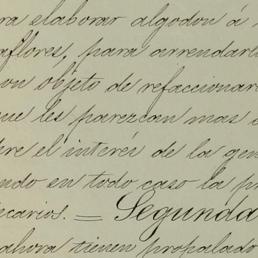 ra elaborar algodon á
aflores, para arrendarl
on objeto de refaccionar
ue les parezcan mas
bre el interés de la gen
ndo en todo caso la p
ecarios. = Segunda
ahora tienen propalado